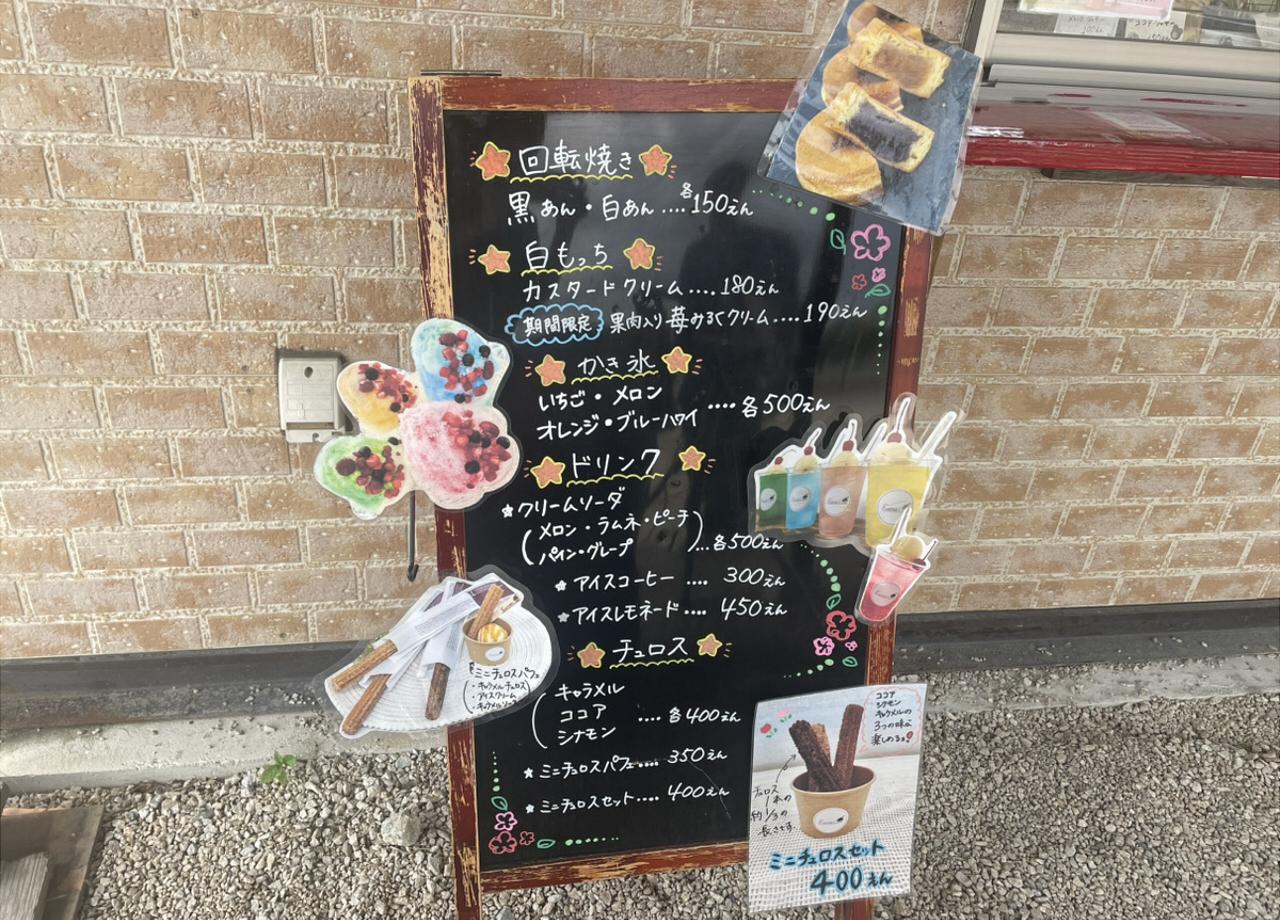 回転焼き
黒あん・白あん....各150えん
白もっち
カスタードクリーム....180えん
期間限定 果肉入り苺みるくクリーム....190えん
かき氷
いちご・メロン
オレンジ・ブルーハワイ ....各500えん
ドリンク
★クリームソーダ
(メロン・ラムネ・ピーチ
パイン・グレープ)...各500えん
★アイスコーヒー....300えん
★アイスレモネード....450えん
チュロス
キャラメル
ココア ....各400えん
シナモン
★ミニチュロスパフェ....350えん
★ミニチュロスセット....400えん
ミニチュロスパフェ
・キャラメルチュロス
・アイスクリーム
・キャラメルソース
ココア
シナモン
キャラメルの
3つの味が
楽しめるよ!
チュロス
1本の
約1/3の
長さです
ミニチュロスセット
400えん